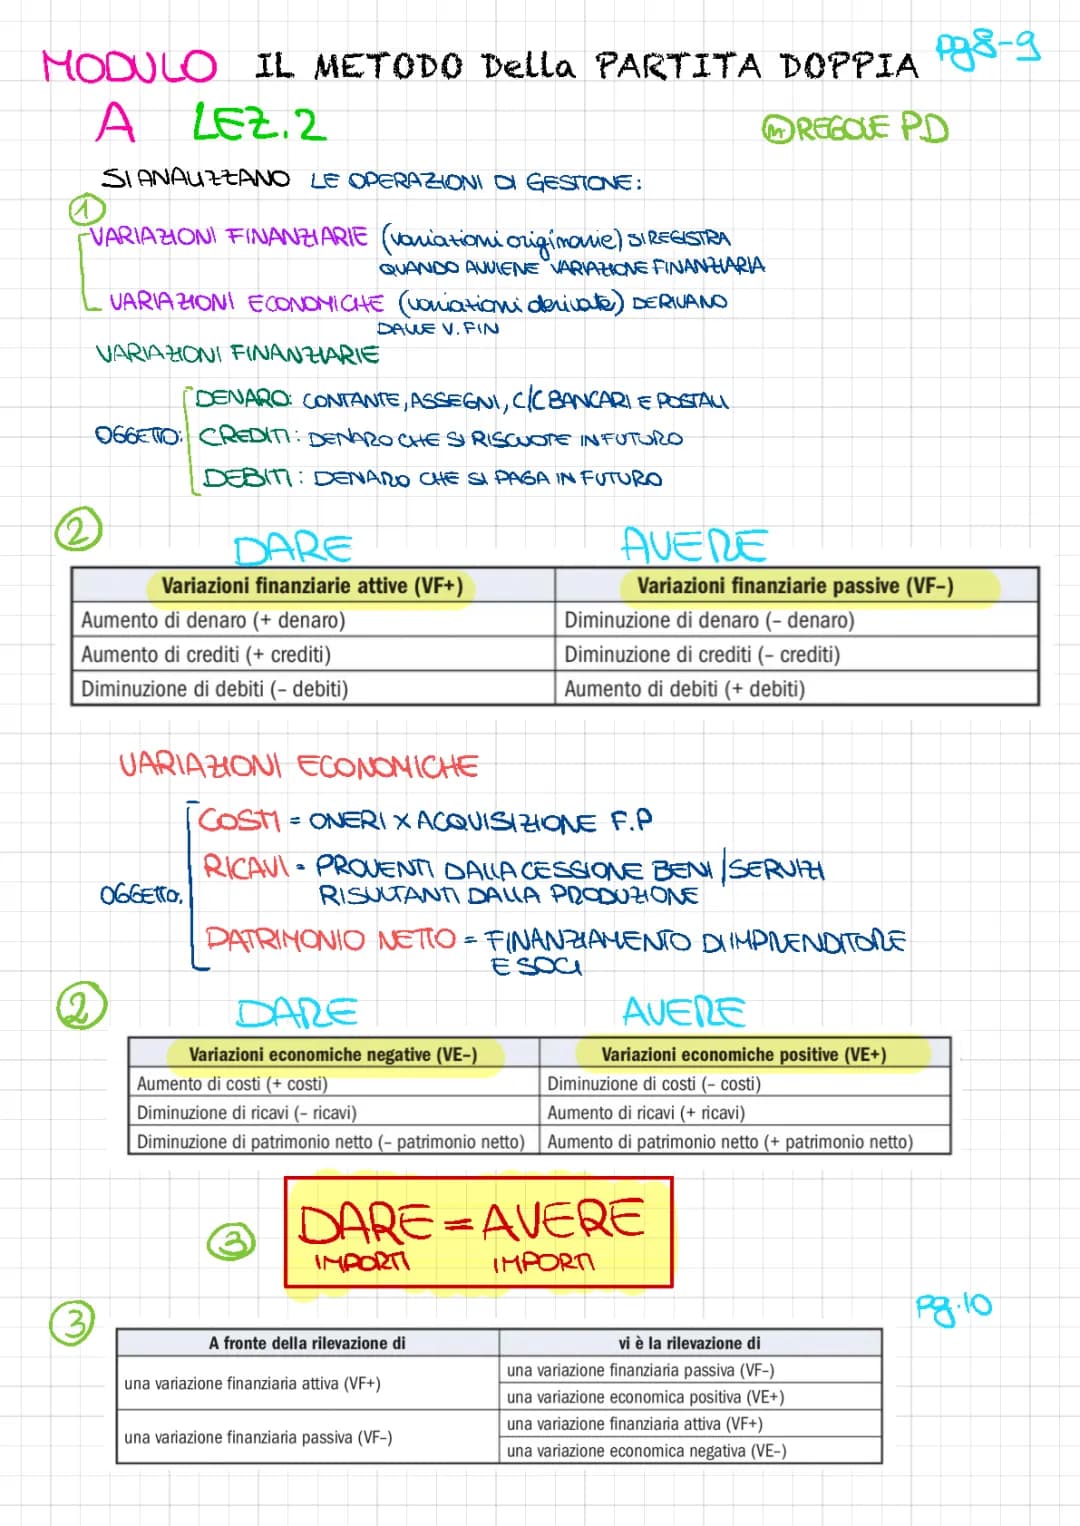 MODULO IL METODO Della PARTITA DOPPIA pg8-9
A LEZ.2
REGOLE PD
SI ANALIZZANO LE OPERAZIONI DI GESTIONE:
1
VARIAZIONI FINANZIARIE (variazioni originarie) SI REGISTRA
QUANDO AVVIENE VARIAZIONE FINANZIARIA
VARIAZIONI ECONOMICHE (variazioni derivate) DERIVANO
DALLE V. FIN
VARIAZIONI FINANZIARIE
DENARO: CONTANTE, ASSEGNI, C/C BANCARI E POSTALI
OGGETTO: CREDITI: DENARO CHE SI RISCUOTE IN FUTURO
DEBITI: DENARO CHE SI PAGA IN FUTURO
2
DARE AVERE
Variazioni finanziarie attive (VF+) Variazioni finanziarie passive (VF-)
Aumento di denaro (+ denaro) Diminuzione di denaro (- denaro)
Aumento di crediti (+ crediti) Diminuzione di crediti (- crediti)
Diminuzione di debiti (- debiti) Aumento di debiti (+ debiti)
VARIAZIONI ECONOMICHE
COSTI = ONERI X ACQUISIZIONE F.P
RICAVI = PROVENTI DALLA CESSIONE BENI / SERVIZI
OGGETTO. RISULTANTI DALLA PRODUZIONE
PATRIMONIO NETTO = FINANZIAMENTO DI IMPRENDITORE
E SOCI
2
DARE AVERE
Variazioni economiche negative (VE-) Variazioni economiche positive (VE+)
Aumento di costi (+ costi) Diminuzione di costi (- costi)
Diminuzione di ricavi (- ricavi) Aumento di ricavi (+ ricavi)
Diminuzione di patrimonio netto (- patrimonio netto) Aumento di patrimonio netto (+ patrimonio netto)
3 DARE = AVERE
IMPORTI IMPORTI
3 pg.10
A fronte della rilevazione di vi è la rilevazione di
una variazione finanziaria attiva (VF+) una variazione finanziaria passiva (VF-)
una variazione economica positiva (VE+)
una variazione finanziaria passiva (VF-) una variazione finanziaria attiva (VF+)
una variazione economica negativa (VE-)